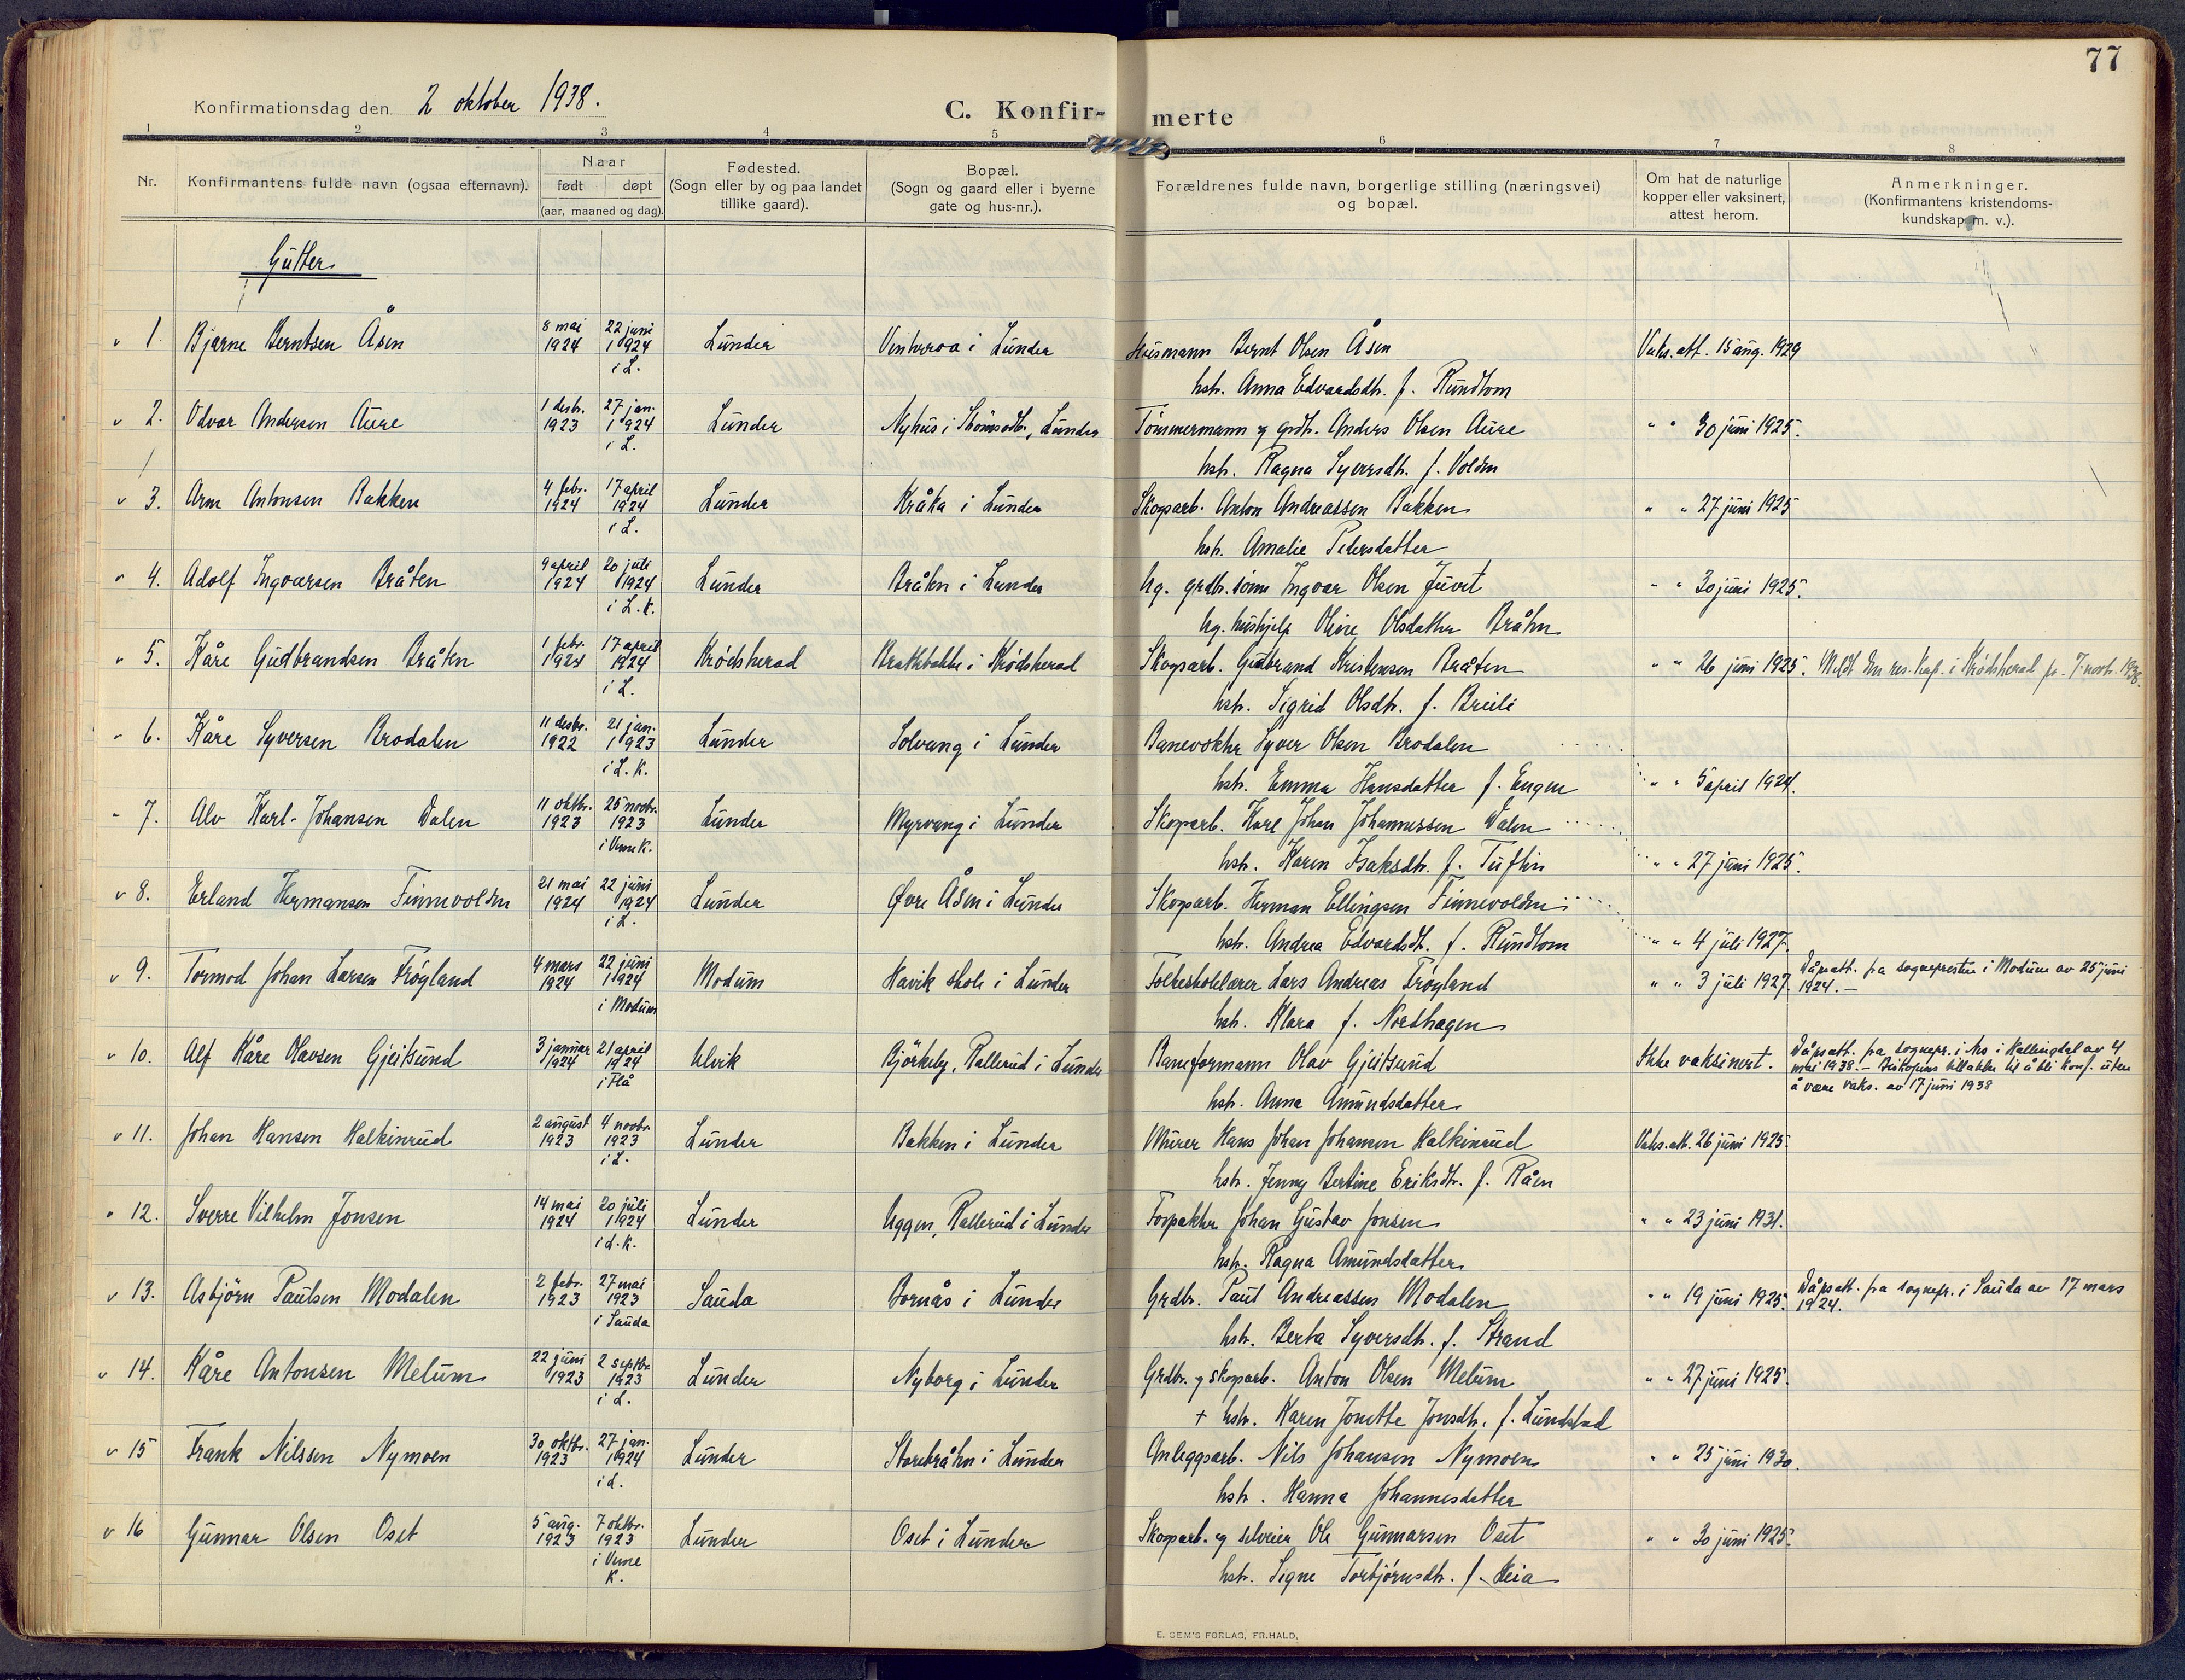 77
Konfirmationsdag den 2 oktober 1938.
C. Konfir- merte
1 2 3 4 5 6 7 8
Nr.
Konfirmantens fulde navn (ogsaa efternavn).
Naar
født døpt
(aar, maaned og dag).
Fødested.
(Sogn eller by og paa landet
tillike gaard).
Bopæl.
(Sogn og gaard eller i byerne
gate og hus-nr.).
Forældrenes fulde navn, borgerlige stilling (næringsvei)
og bopæl.
Om hat de naturlige
kopper eller vaksinert,
attest herom.
Anmerkninger.
(Konfirmantens kristendoms-
kundskap m. v.).
Gutter
1. Bjarne Berntsen Åsen 8 mai 1924 22 juni 1924 i L. Lunder i Lunder Husmann Bernt Olsen Åsen Vaks. att. 15 aug. 1929
hstr. Anna Edvardsdtr. f. Rundtom
2. Odvar Andersen Aure 1 desbr. 1923 27 jan. 1924 i L. Lunder Nyhus i Strömsodb., Lunder Tømmermann og grdbr. Anders Olsen Aure " " 30 juni 1925.
hstr. Ragna Syversdtr. f. Volden
3. Arne Antonsen Bakken 4 febr. 1924 17 april 1924 i L. Lunder Kråka i Lunder Skogsarb. Anton Andreassen Bakken " " 27 juni 1925
hstr. Amalie Pedersdatter
4. Adolf Ingvarsen Bråten 9 april 1924 20 juli 1924 i L. K. Lunder Bråten i Lunder Ug. grdbr. sønn Ingvar Olsen Juvet " " 30 juni 1925.
Ug. hushjelp Oline Olsdatter Bråten
5. Kåre Gudbrandsen Bråten 1 febr. 1924 17 april 1924 i L. Krødsherad Brattebakke i Krødsherad Skogsarb. Gudbrand Kristensen Bråten " " 26 juni 1925. Meldt den res. kap. i Krødsherad pr. 7 novb. 1938.
hstr. Sigrid Olsdtr. f. Breili
6. Kåre Syversen Brodalen 11 desbr. 1922 21 jan. 1923 i L. K. Lunder Solvang i Lunder Banevokter Syver Olsen Brodalen
hstr. Emma Hansdatter f. Engen " " 5 april 1924.
7. Alv Karl-Johansen Dalen 11 oktbr. 1923 25 novbr. 1923 i Vime K. Lunder Myrvang i Lunder Skogsarb. Karl Johan Johannessen Dalen
hstr. Karen Isaksdtr. f. Tuftin " " 27 juni 1925.
8. Erland Hermansen Finnevolden 21 mai 1924 22 juni 1924 i L. Lunder Øvre Åsen i Lunder Skogsarb. Herman Ellingsen Finnevolden
hstr. Andrea Edvardsdt. f. Rundtom " " 4 juli 1927
9. Tormod Johan Larsen Frøyland 4 mars 1924 22 juni 1924 i Modum Modum Havik skole i Lunder Folkeskolelærer Lars Andreas Frøyland " " 3 juli 1927 Dåpsatt. fra sognepresten i Modum av 25 juni
1924. —
hstr. Klara f. Nordhagen
10. Alf Kåre Olavsen Gjeitsund 3 januar 1924 21 april 1924 i Flå Ulvik Björkeby, Rallerud i Lunder Baneformann Olav Gjeitsund Ikke vaksinert. Dåpsatt. fra sognepr. i Nes i Hallingdal av 4
mai 1938. — Biskopens tillatelse til å bli konf. uten
å være vaks. av 17 juni 1938
hstr. Anna Amundsdatter
11. Johan Hansen Halkinrud 2 august 1923 4 novbr. 1923 i L. Lunder Bakken i Lunder Murer Hans Johan Johansen Halkinrud Vaks. att. 26 juni 1925.
hstr. Jenny Bertine Eriksdtr. f. Råen
12. Sverre Vilhelm Jonsen 14 mai 1924 20 juli 1924 i L. K. Lunder Uggen, Rallerud i Lunder Forpakter Johan Gustav Jonsen " " 23 juni 1931.
hstr. Ragna Amundsdatter
13. Asbjörn Paulsen Modalen 2 febr. 1923 27 mai 1923 i Sauda Sauda Bornås i Lunder Grdbr. Paul Andreassen Modalen " " 19 juni 1925. Dåpsatt. fra sognepr. i Sauda av 17 mars
1924.
hstr. Berta Syversdtr. f. Strand
14. Kåre Antonsen Melum 22 juni 1923 2 septbr. 1923 i L. Lunder Nyborg i Lunder Grdbr. og skogsarb. Anton Olsen Melum " " 27 juni 1925.
+ hstr. Karen Jonette Jonsdtr. f. Lundstad
15 Frank Nilssen Nymoen 30 oktbr. 1923 27 jan. 1924 i L. Lunder Storebråten i Lunder Anleggsarb. Nils Johansen Nymoen " " 25 juni 1930.
hstr. Hanna Johannesdatter
16 Gunnar Olsen Oset 5 aug. 1923 7 oktbr. 1923 i Vime K. Lunder Oset i Lunder Skogsarb. og selveier Ole Gunnarsen Oset " " 30 juni 1925.
hstr. Signe Torbjörnsdtr. f. Heia
E. SEM'S FORLAG, FR.HALD.